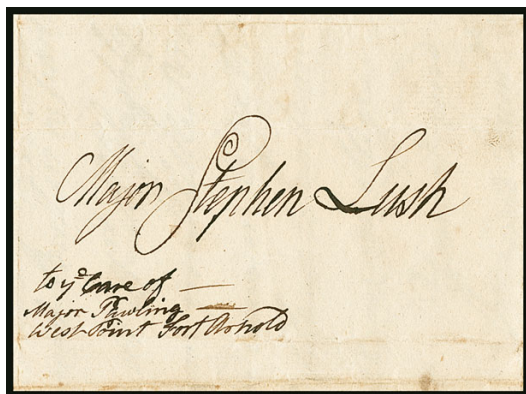 Major Stephen Lush
to yͤ Care of —
Major Pawling —
West Point Fort Arnold